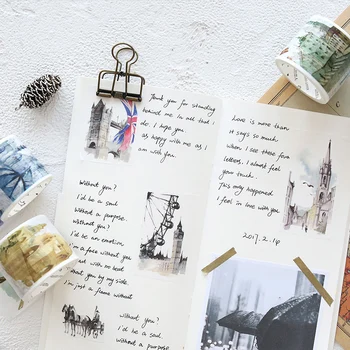 Thank you for standing
behind me in all that i
do. I hope you
as happy with me as i
am with you.
Without you?
I'd be a soul
Without a purpose.
Without you?
I'd be an emotion
I'm a face without you
and with no head
about you by my side.
I'm just a flame without
Without you?
I'd be a soul
without a purpose.
Love is more than
It says so much.
When I see these four
letters, I almost feel
your touch.
This only happened
I feel in love with you
2017.2.14